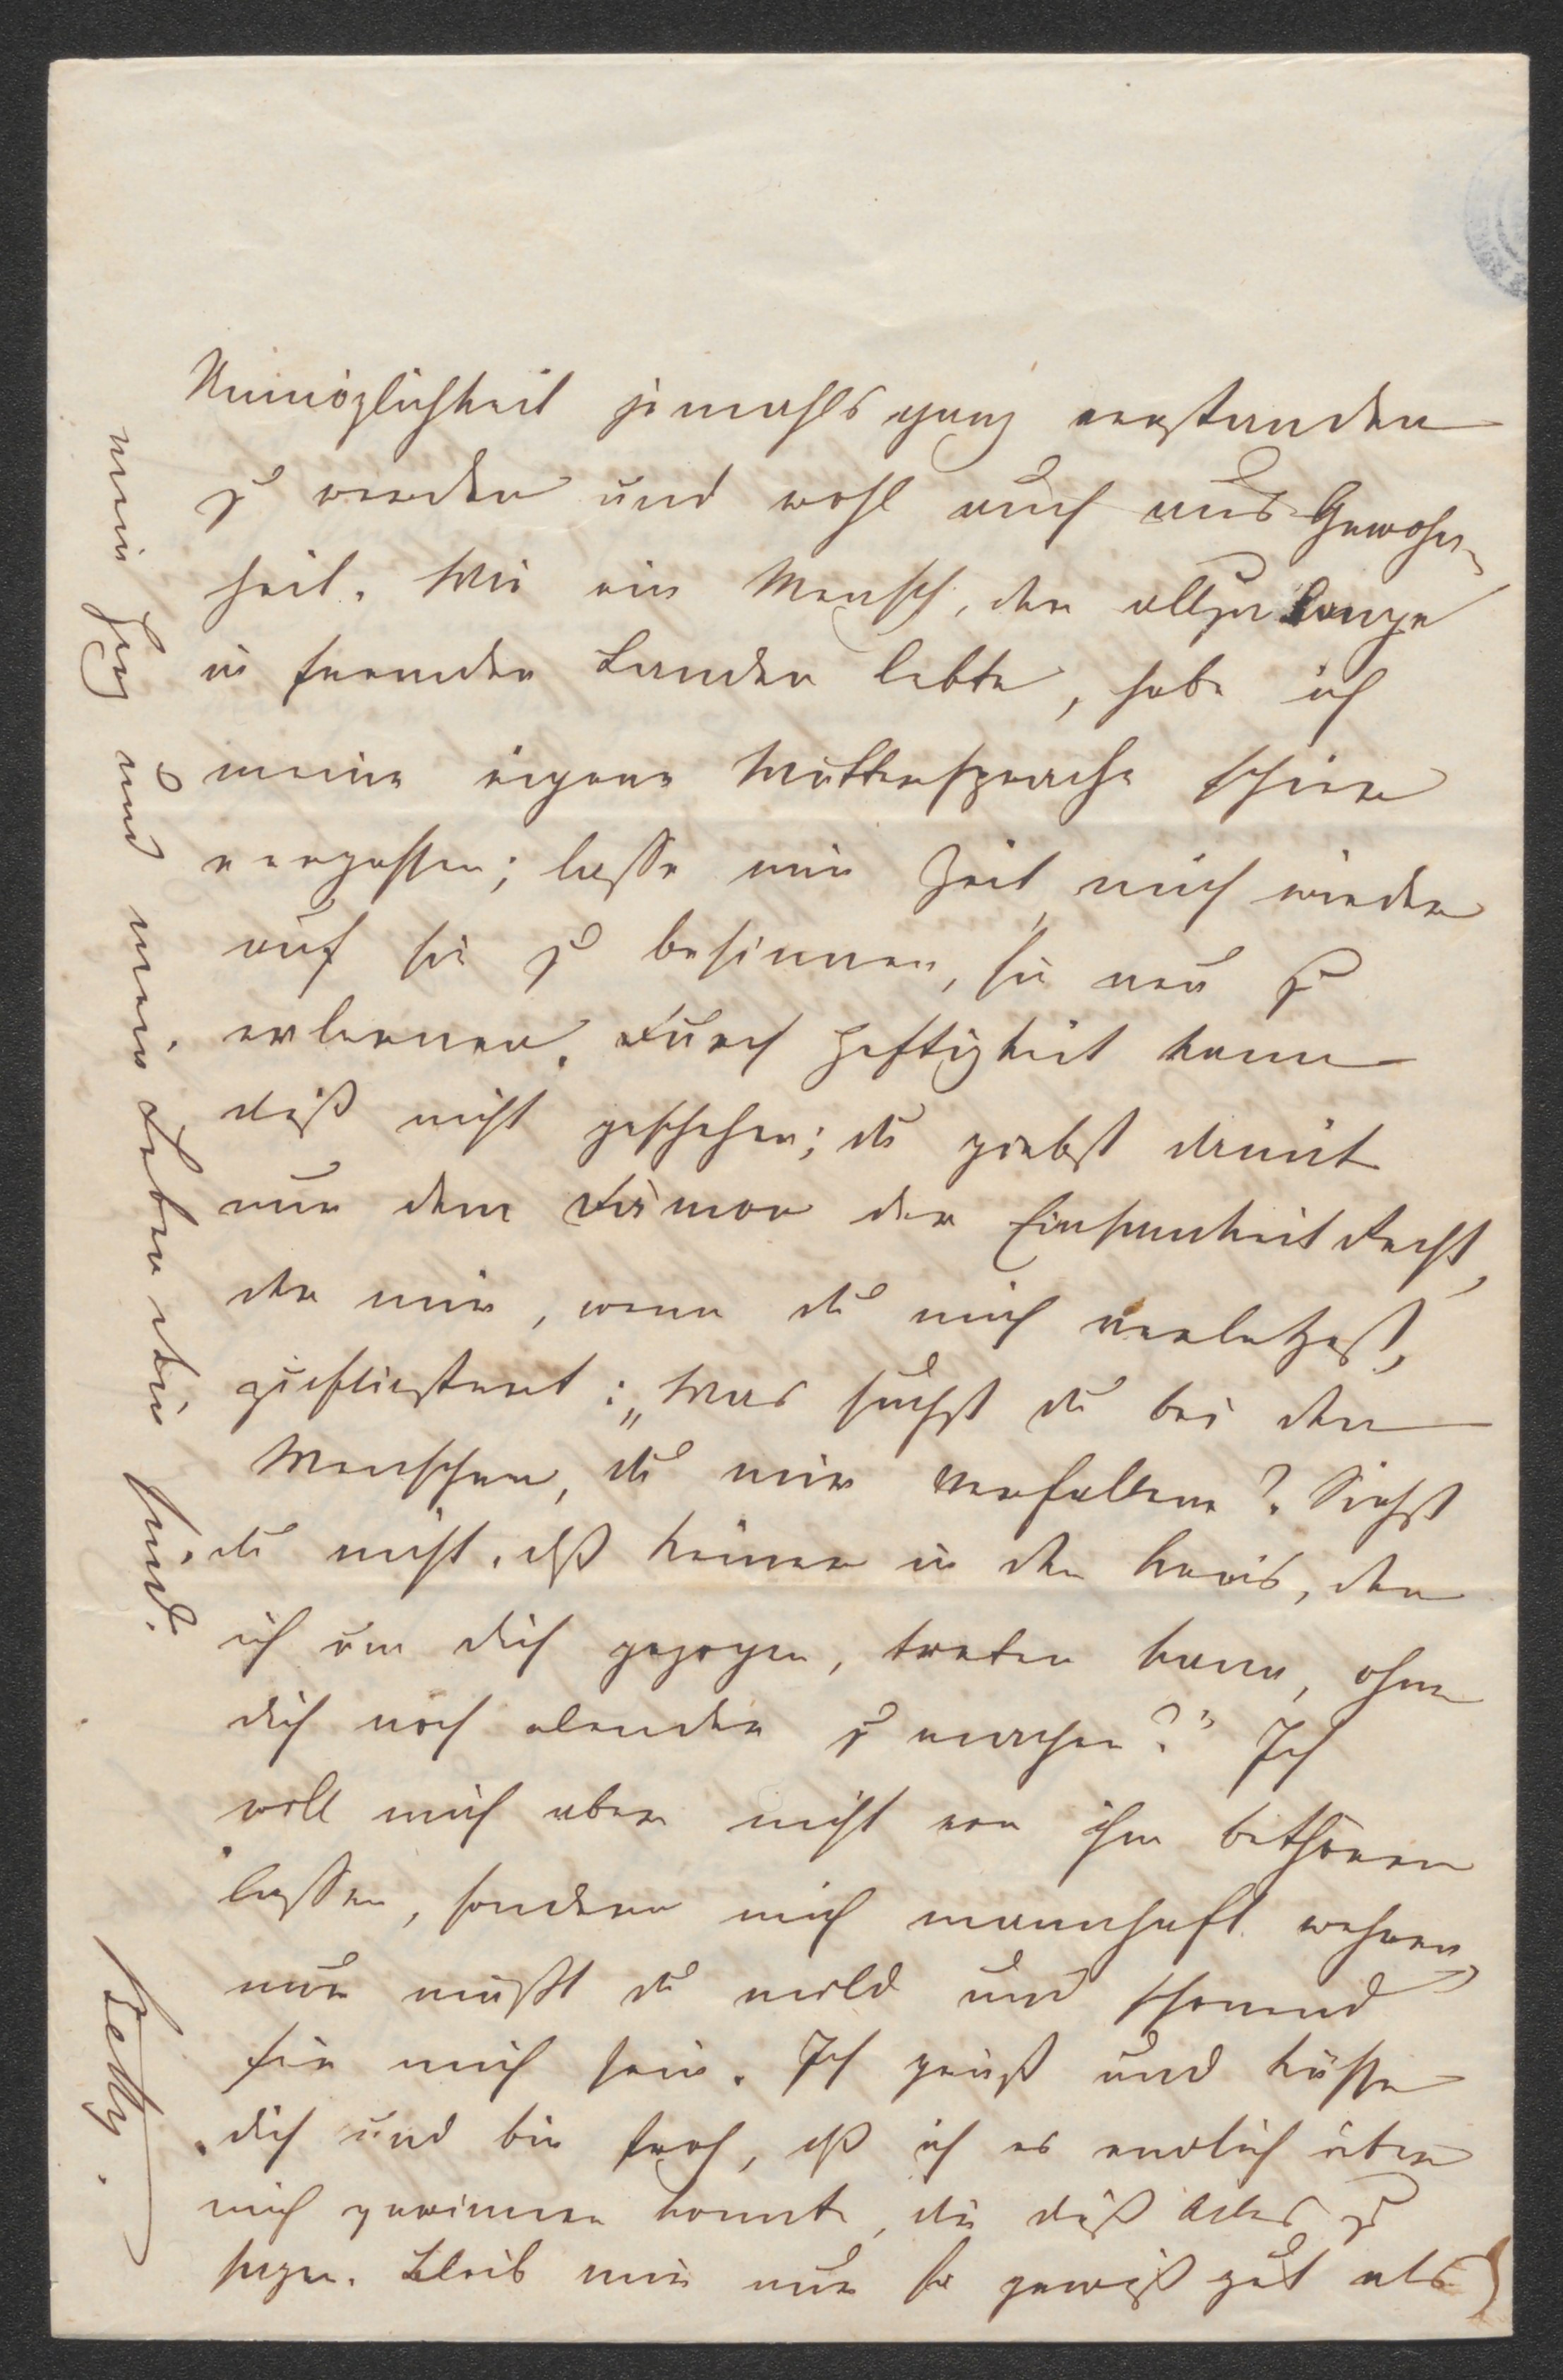 Unmöglichkeit jemahls ganz verstanden
zu werden und wohl auch aus Gewohn-
heit. Wie ein Mensch, der allzu lange
in fremden Landen lebte, habe ich
meine eigene Muttersprache schier
vergessen; lasse mir Zeit, mich wieder
auf sie zu besinnen, sie neu zu
erlernen. Durch Heftigkeit kann
diß nicht geschehen; du giebst damit
nur dem Dämon der Einsamkeit Recht,
der mir, wenn du mich verletzest,
zuflüstert: „Was suchst du bei den
Menschen, du mir Verfallene? Siehst
du nicht, dß keiner in den Kreis, den
ich um dich gezogen, treten kann, ohne
dich noch elender zu machen?" Ich
will mich aber nicht von ihm bethören
lassen, sondern mich mannhaft wehren,
nur mußt du mild und schonend
für mich sein. Ich grüß und küsse
dich und bin froh, dß ich es endlich über
mich gewinnen konnte, dir diß Alles zu
sagen. Bleib mir nur so gewiß gut als
mein Herz und mein Leben dein sind.
Betty.